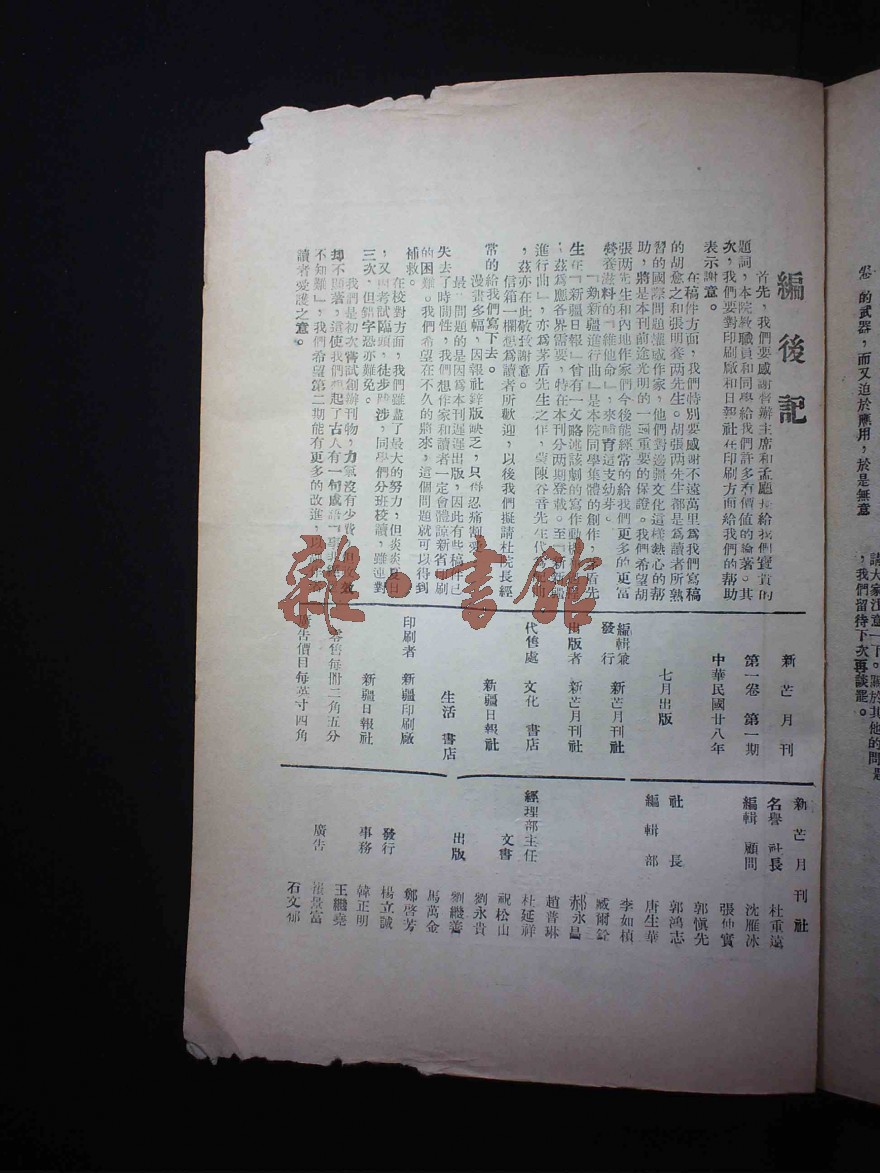 編後記
首先，我們要感謝督辦主席和孟廳長給我們寶貴的
題詞，本院教職員和同學給我們許多有價值的論著。其
次，我們要對印刷廠和日報社在印刷方面給我們的幫助
表示謝意。
在稿件方面，我們特別要感謝不遠萬里爲我們寫稿
的胡愈之和張明養两先生。胡張两先生都是爲讀者所熟
習的國際問題權威作家，他們對邊疆文化這樣熱心的帮
助，將是本刊前途光明的一個重要的保證。我們希望胡
張两先生和內地作家們今後能經常的給我們更多的更富
營養滋料的『維他命』，來哺育這支幼芽。
『新新疆進行曲』是本院同學集體的創作，茅盾先
生在『新疆日報』曾有一文略述該劇的寫作動機
，茲爲應各界需要，特在本刊分兩期登載。至『新新疆
進行曲』，亦爲茅盾先生之作，蒙陳谷音先生代爲
，茲亦在此敬致謝意。
信箱一欄想爲讀者所歡迎，以後我們擬請杜院長經
常的給我們寫下去。
漫畫多幅，因報社鋅版缺乏，只得忍痛割愛
最 問題的是因爲本刊遲遲出版，因此有些稿件已
失去了時間性，我們想作家和讀者一定會體諒新省印刷
的困難。我們希望在不久的將來，這個問題就可以得到
補救。
在校對方面，我們雖盡了最大的努力，但炎炎夏日
，又 考試臨頭，徒步跋涉，同學們分班校讀，雖連對
三次，但錯字恐亦難免。
我們是初次嘗試創辦刊物，力氣沒有少費，但 效
却不顯著，這使我們想起了古人有一句成語『事非經
不知難』，我們希望第二期能有更多的改進，以
讀者愛護之意。
新芒月刊
第一卷 第一期
中華民國廿八年
七月出版
編輯兼
發行 新芒月刊社
出版者 新芒月刊社
代售處 文化書店
新疆日報社
生活書店
印刷者 新疆印刷廠
新疆日報社
零售每冊二角五分
廣告價目每英寸四角
新芒月刊社
名譽社長 杜重遠
編輯顧問 沈雁冰
張仲實
郭愼先
社長 郭鴻志
編輯部 唐生華
李如楨
臧爾銓
郝永昌
趙普琳
經理部主任 杜延祥
文書 祝松山
劉永貴
出版 劉繼善
馬萬金
發行 鄭啓芳
楊立誠
事務 韓正明
王繼堯
廣告 張景富
石文郁
的武器，而又迫於應用，於是無意
請大家注意一下。關於其他的問題
，我們留待下次再談罷。
雜·書館